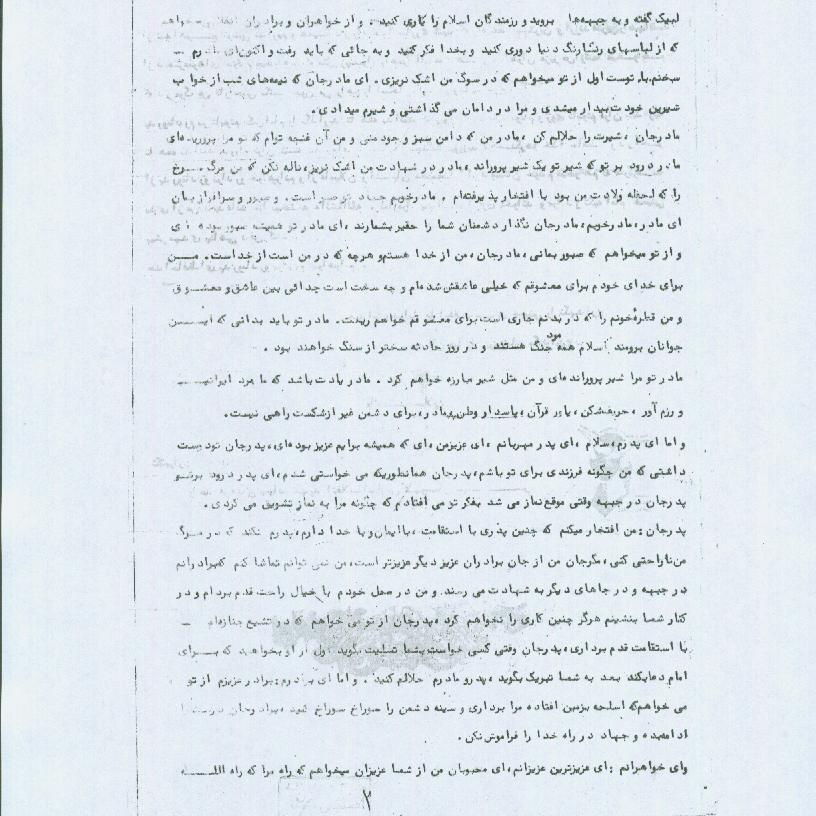 لبیک گفته و به جبهه‌ها بروید و رزمندگان اسلام را یاری کنید، و از خواهران و برادران
که از لباسهای رنگارنگ دنیا دوری کنید و بخدا فکر کنید و به جائی که باید رفت و اکنون‌ای مادرم
سخنم با توست اول از تو میخواهم که در سوگ من اشک نریزی. ای مادرجان که نیمه‌های شب از خواب
شیرین خودت بیدار میشدی و مرا در دامان می گذاشتی و شیرم میدادی.
مادرجان، شیرت را حلالم کن، مادر من که دامن سبز وجود منی و من آن غنچه توام که تو مرا پروریده‌ای
مادر درود بر تو که شیر تو یک شیر پروراند، مادر در شهادت من اشک نریز، ناله نکن که من مرگ سرخ
را که لحظه ولادت من بود با افتخار پذیرفته‌ام. مادر خوبم جهاد تو صبر است. و صبور و سرافراز بمان
ای مادر، مادر خوبم، مادرجان نگذار دشمنان شما را حقیر بشمارند، ای مادر تو همیشه صبور بوده ای
و از تو میخواهم که صبور بمانی، مادرجان، من از خدا هستم و هرچه که در من است از خداست. من
برای خدای خودم برای معشوقم که خیلی عاشقش شده‌ام و چه سخت است جدائی بین عاشق و معشوق
و من قطرهٔ خونم را که در بدنم جاری است برای معشوقم خواهم ریخت. مادر تو باید بدانی که این
جوانان برومند اسلام همه مرد جنگ هستند و در روز حادثه سختر از سنگ خواهند بود.
مادر تو مرا شیر پرورانده‌ای و من مثل شیر مبارزه خواهم کرد. مادر یادت باشد که ما مرد ایرانیم
و رزم آور، حریف‌شکن، یاور قرآن، پاسدار وطن، مادر، برای دشمن غیر از شکست راهی نیست.
و اما ای پدرم، سلام، ای پدر مهربانم، ای عزیز من، ای که همیشه برایم عزیز بوده‌ای، پدرجان تو دوست
داشتی که من چگونه فرزندی برای تو باشم، پدرجان همانطوریکه می خواستی شدم، ای پدر درود بر تو
پدرجان در جبهه وقتی موقع نماز می شد بفکر تو می افتادم که چگونه مرا به نماز تشویق می کردی.
پدرجان: من افتخار میکنم که چنین پدری با استقامت، باایمان و با خدا دارم، پدرم نکند که در مرگ
من ناراحتی کنی، مگر جان من از جان برادران عزیز دیگر عزیزتر است، من نمی توانم تماشا کنم که برادرانم
در جبهه و در جاهای دیگر به شهادت می رسند و من در محل خودم با خیال راحت قدم بردارم و در
کنار شما بنشینم هرگز چنین کاری را نخواهم کرد، پدرجان از تو می خواهم که در تشییع جنازه‌ام
با استقامت قدم برداری، پدرجان وقتی کسی خواست بشما تسلیت بگوید اول از او بخواهید که برای
امام دعا بکند بعد به شما تبریک بگوید، پدر و مادرم حلالم کنید. و اما ای برادرم: برادر عزیزم از تو
می خواهم که اسلحه بزمین افتاده مرا برداری و سینه دشمن را سوراخ سوراخ کنی، برادرجان درست را
ادامه بده و جهاد در راه خدا را فراموش نکن.
وای خواهرانم: ای عزیزترین عزیزانم، ای محبوبان من از شما عزیزان میخواهم که راه مرا که راه الله
۲